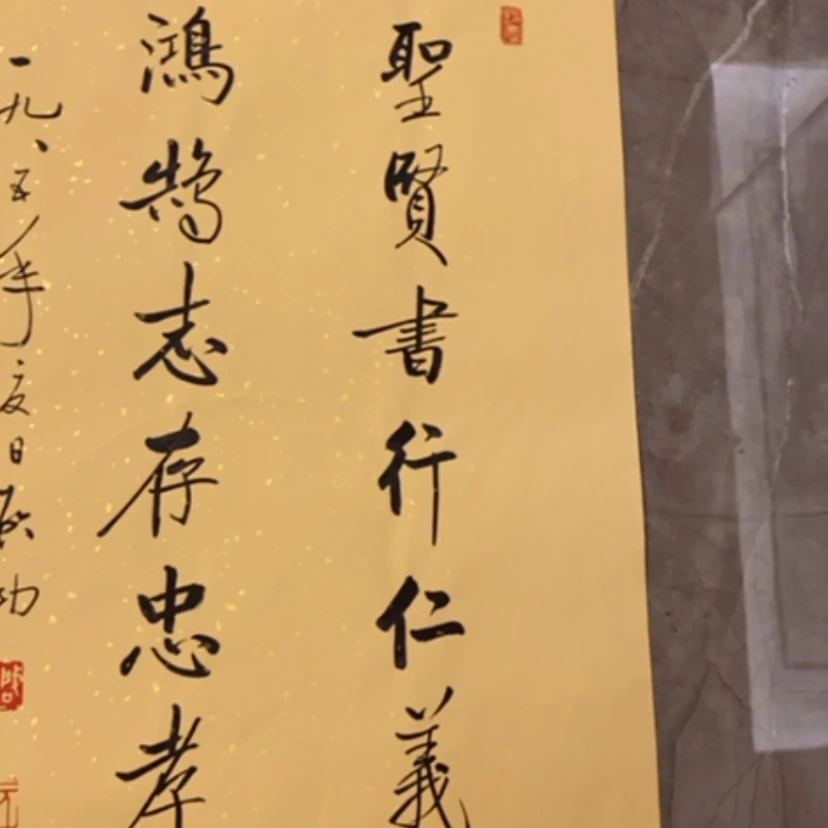 聖賢書行仁義
鴻鵠志存忠孝
一九八五年夏日啟功